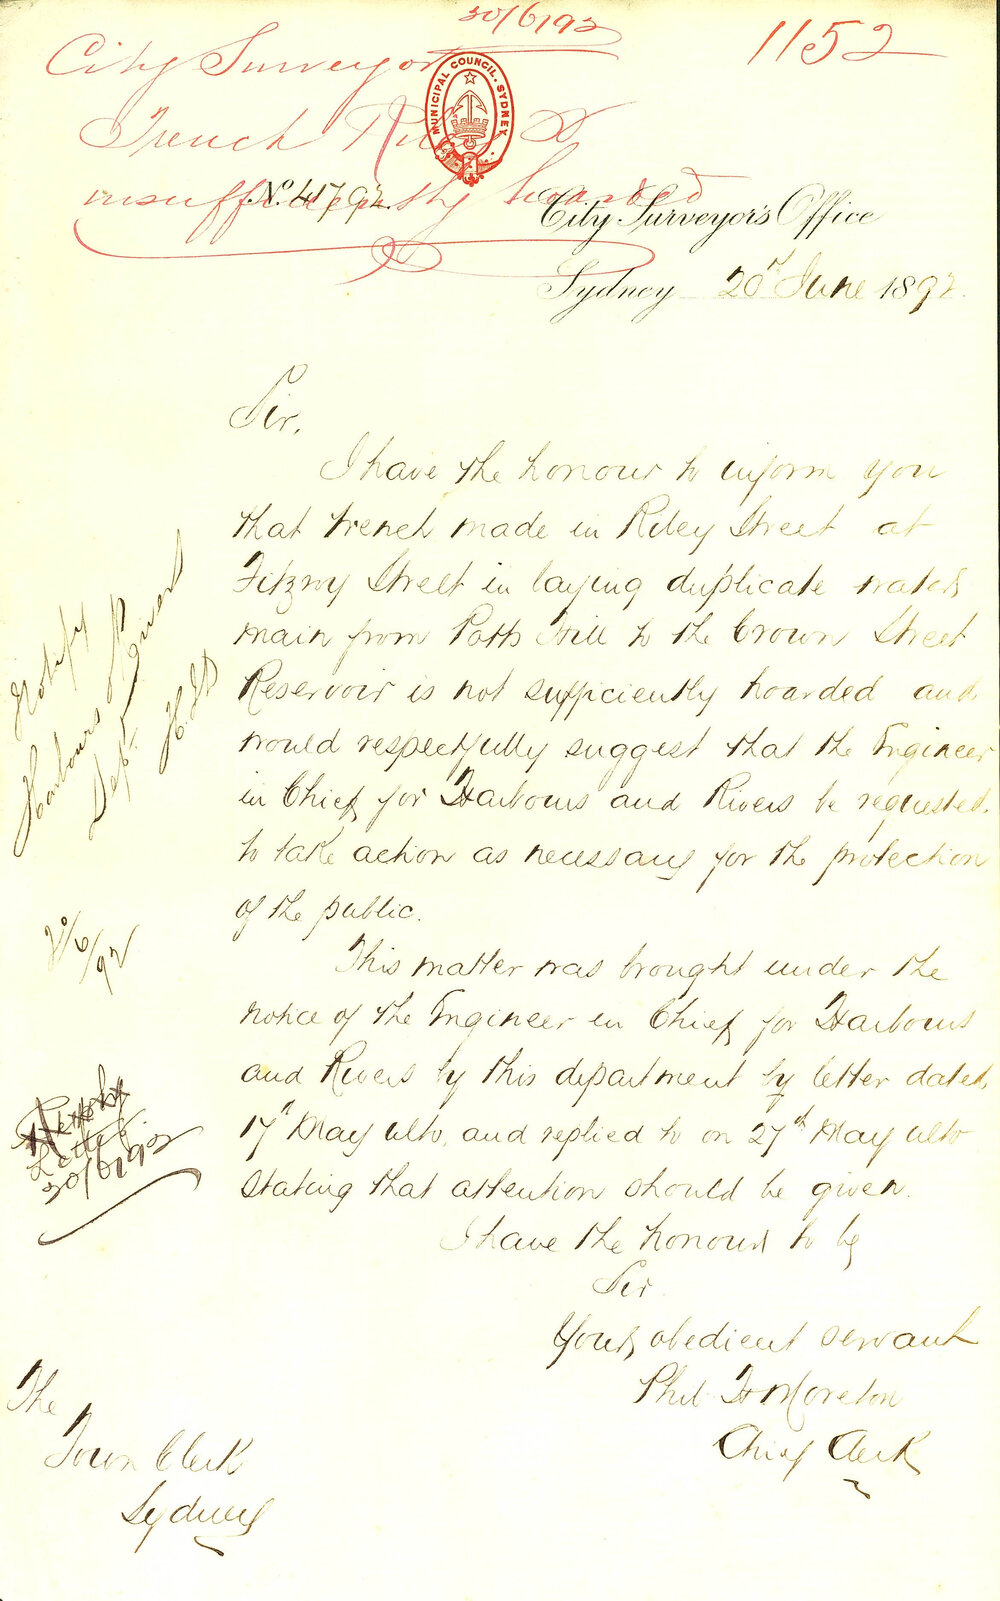 30/6/92
1152
City Surveyor
Trench Riley St
insufficiently hoarded
MUNICIPAL COUNCIL. SYDNEY
No. 417.92.
City Surveyor's Office
Sydney 20th June 1892.
Sir,
I have the honour to inform you
that trench made in Riley Street at
Fitzroy Street in laying duplicate water
main from Potts Hill to the Crown Street
Reservoir is not sufficiently hoarded and
would respectfully suggest that the Engineer
in Chief for Harbours and Rivers be requested
to take action as necessary for the protection
of the public.
This matter was brought under the
notice of the Engineer in Chief for Harbours
and Rivers by this department by letter dated
17th May ulto, and replied to on 27th May ulto
stating that attention should be given.
I have the honour to be
Sir
Yours obedient servant
Phil H Moreton
Chief Clerk
The
Town Clerk
Sydney
Notify
Harbours &
Dept.
/6/92
Letter
30/6/92